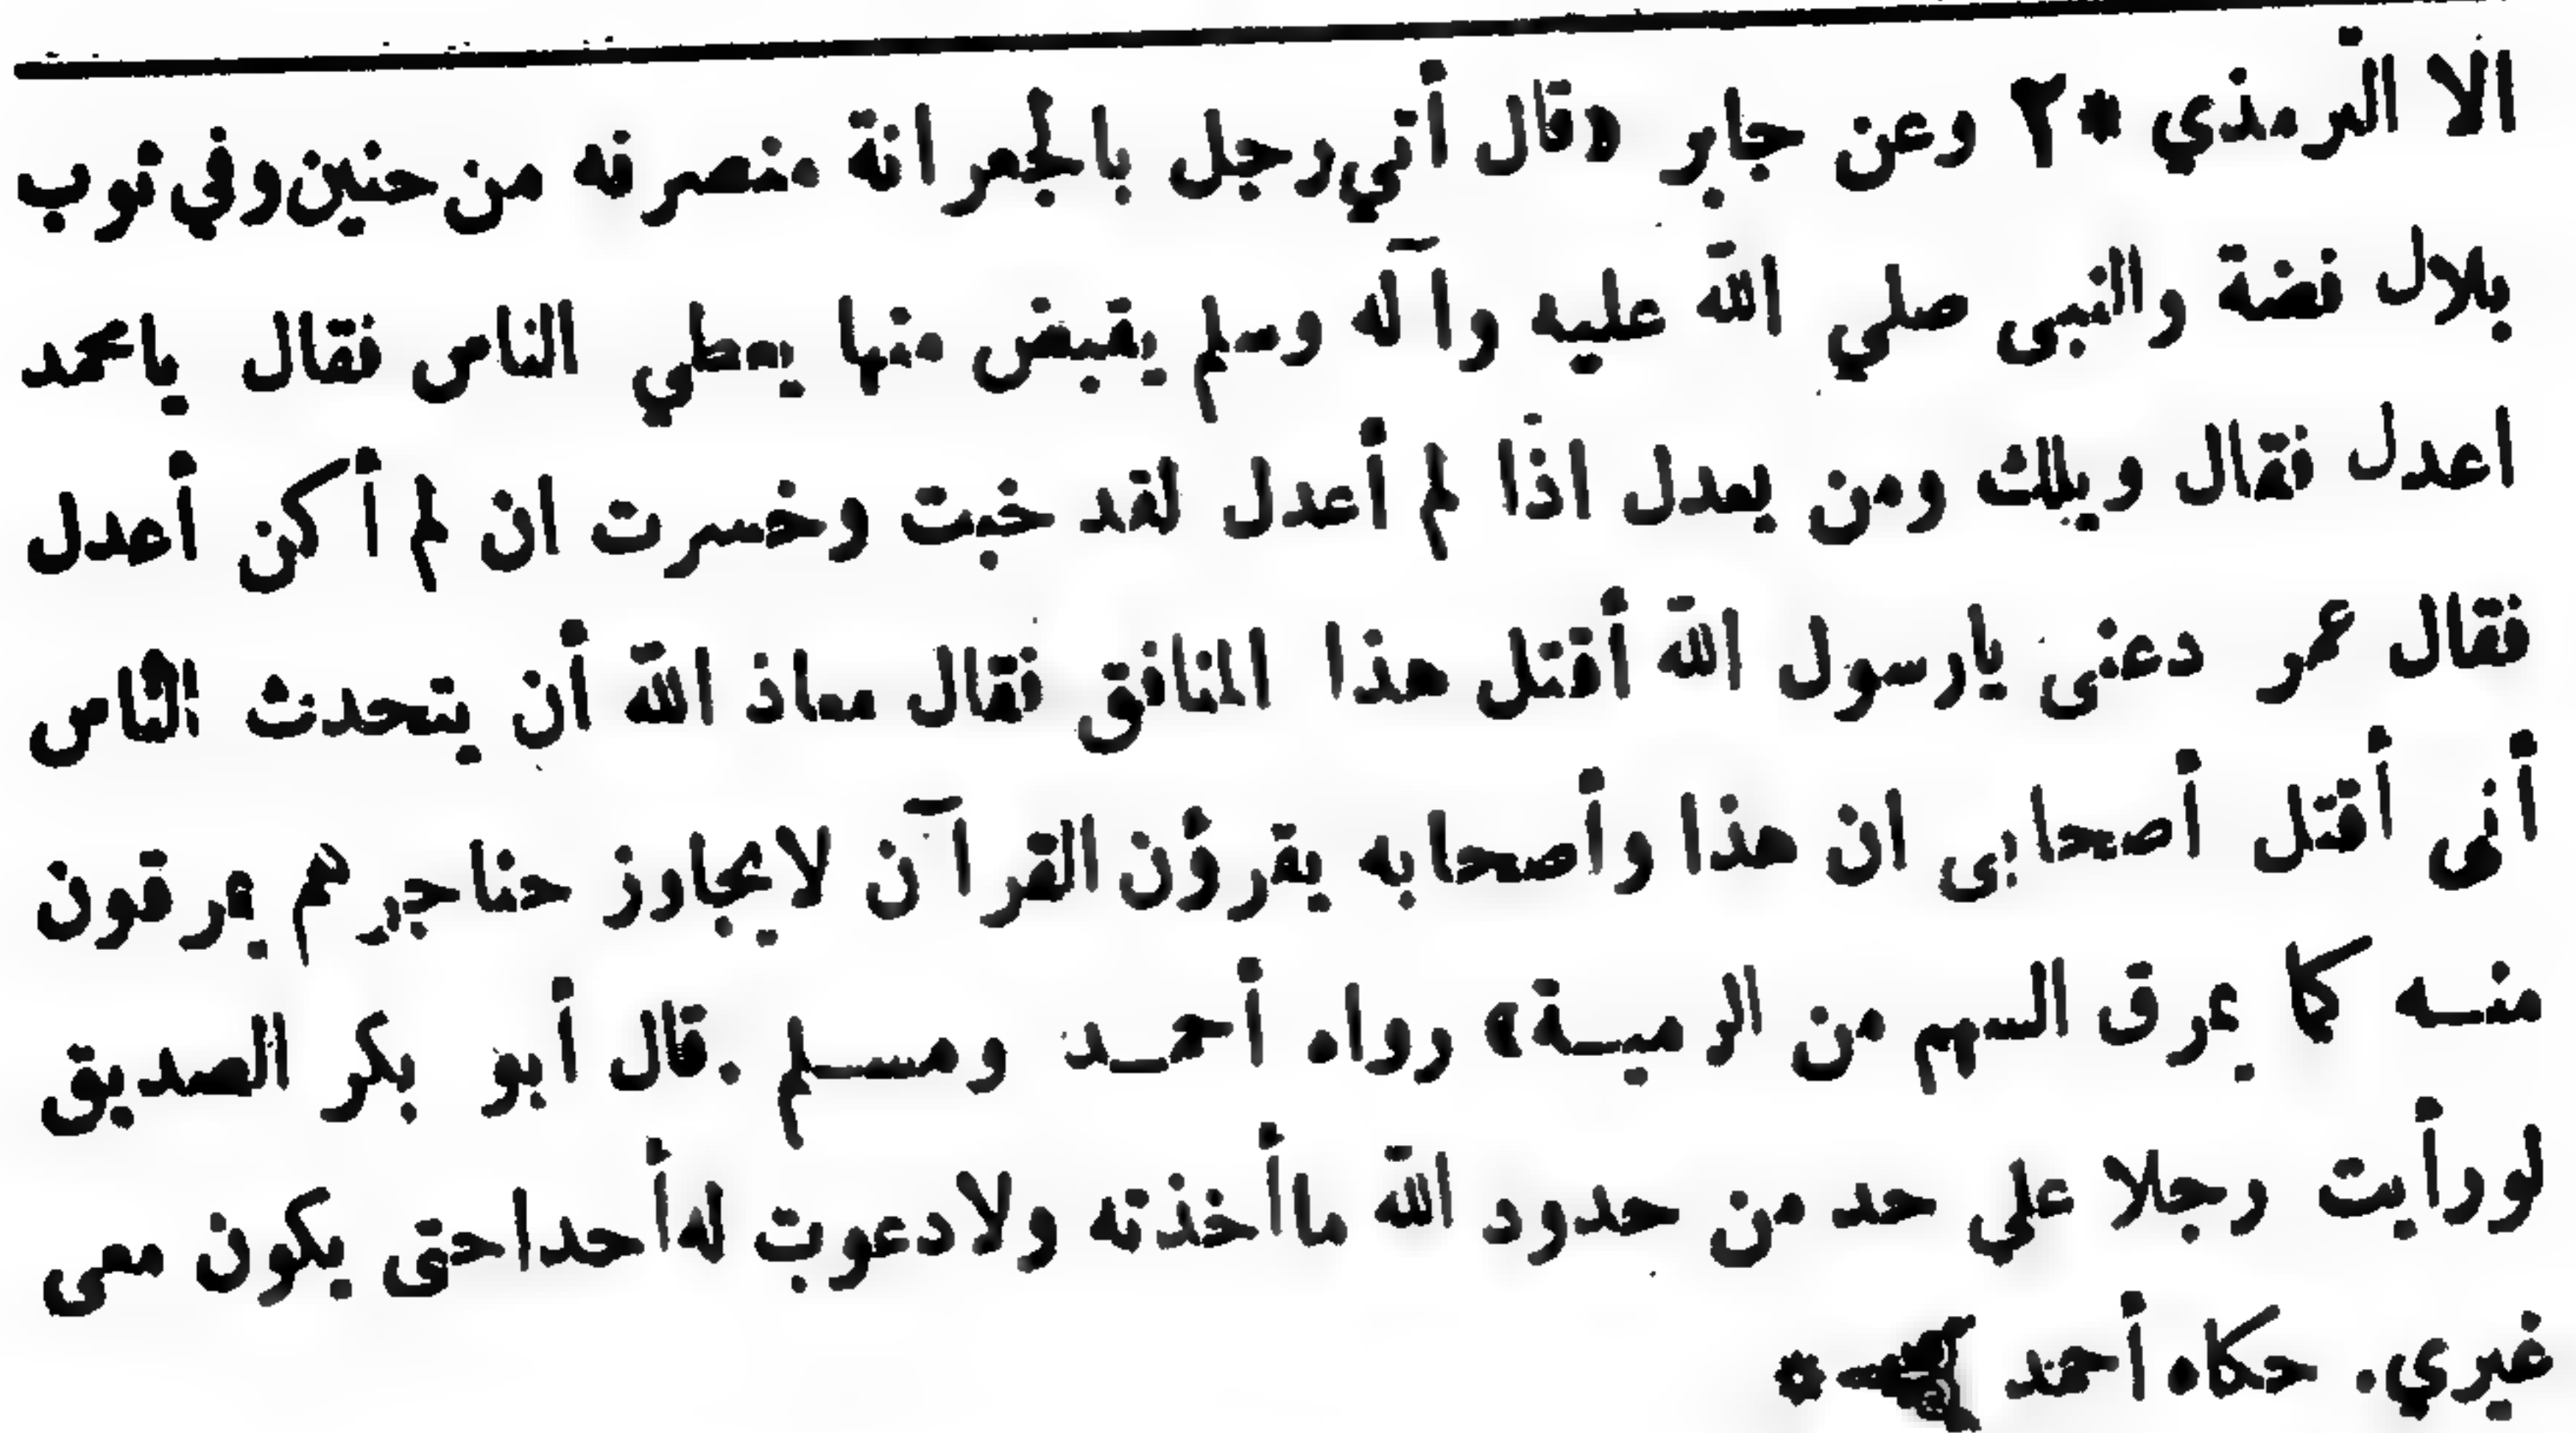 الا الترمذي *٢ وعن جابر «قال أتي رجل بالجعرانة منصرفه من حنين وفي ثوب
بلال فضة والنبى صلي الله عليه وآله وسلم يقبض منها يعطي الناس فقال يامحمد
اعدل فقال ويلك ومن يعدل اذا لم أعدل لقد خبت وخسرت ان لم أكن أعدل
فقال عمر دعنى يارسول الله أقتل هذا المنافق فقال معاذ الله أن يتحدث الناس
أنى أقتل أصحابى ان هذا وأصحابه يقرؤن القرآن لايجاوز حناجرهم يمرقون
منـه كما يمرق السهم من الرميـة» رواه أحمـد ومسـلم .قال أبو بكر الصديق
لورأيت رجلا علي حد من حدود الله ماأخذته ولادعوت له أحداحتى يكون معى
غيري. حكاه أحمد *